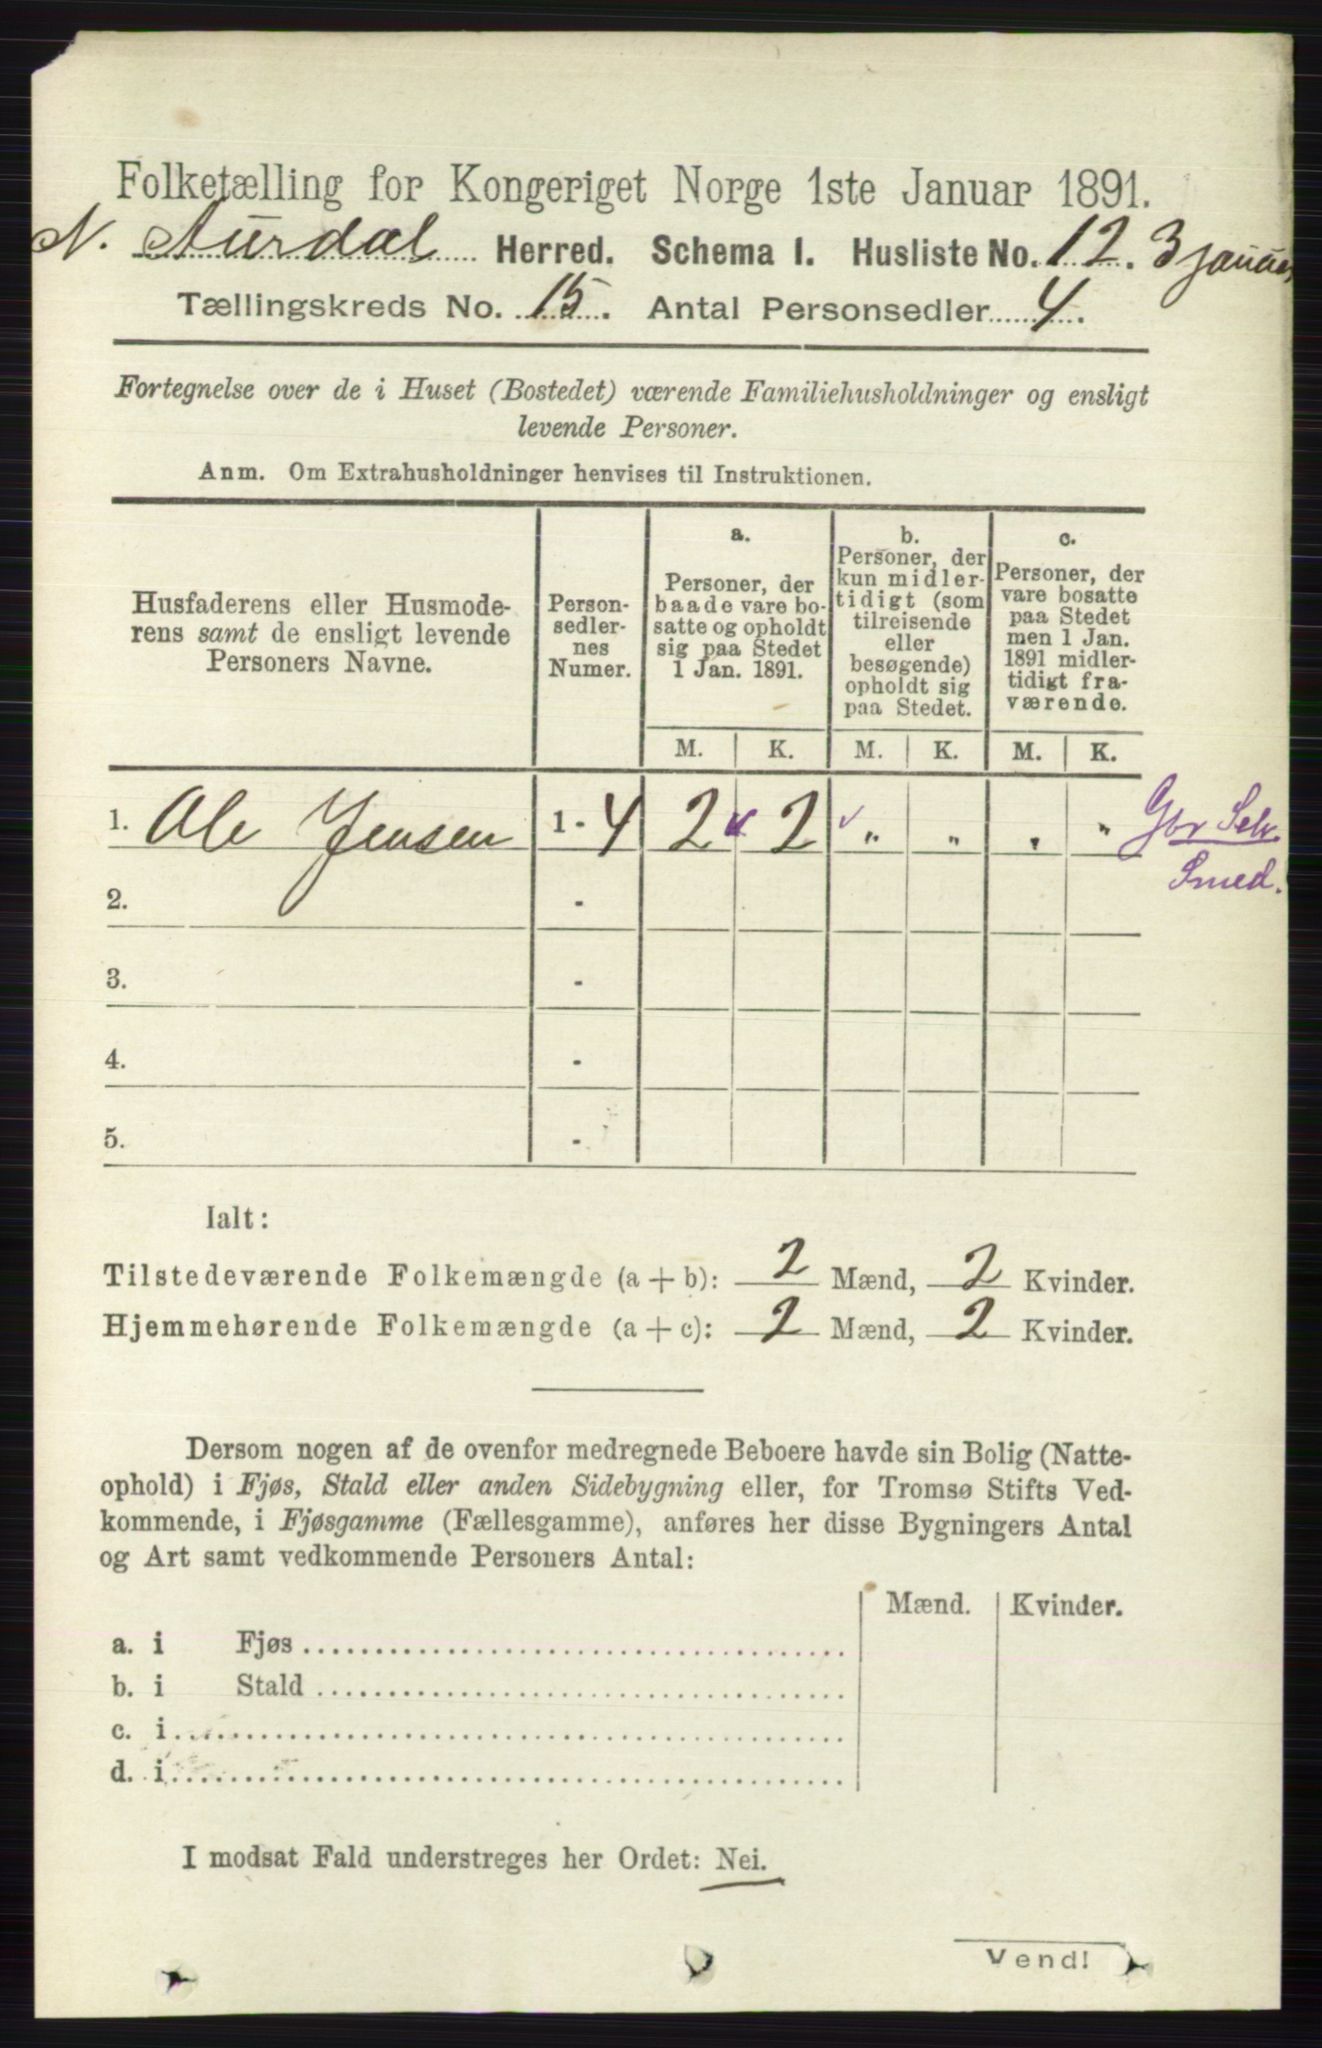 Folketælling for Kongeriget Norge 1ste Januar 1891.
N. Aurdal Herred. Schema I. Husliste No. 12. 3 januar
Tællingskreds No. 15. Antal Personsedler 4.
Fortegnelse over de i Huset (Bostedet) værende Familiehusholdninger og ensligt
levende Personer.
Anm. Om Extrahusholdninger henvises til Instruktionen.
Husfaderens eller Husmode-
rens samt de ensligt levende
Personers Navne.
Person-
sedler-
nes
Numer.
a.
Personer, der
baade vare bo-
satte og opholdt
sig paa Stedet
1 Jan. 1891.
b.
Personer, der
kun midler-
tidigt (som
tilreisende
eller
besøgende)
opholdt sig
paa Stedet.
c.
Personer, der
vare bosatte
paa Stedet
men 1 Jan.
1891 midler-
tidigt fra-
værende.
M. K. M. K. M. K.
1. Ole Jensen 1 - 4 2 2 " " " " Gbr Selv
Smed.
2. -
3. -
4. -
5. -
Ialt:
Tilstedeværende Folkemængde (a + b): 2 Mænd, 2 Kvinder.
Hjemmehørende Folkemængde (a + c): 2 Mænd, 2 Kvinder.
Dersom nogen af de ovenfor medregnede Beboere havde sin Bolig (Natte-
ophold) i Fjøs, Stald eller anden Sidebygning eller, for Tromsø Stifts Ved-
kommende, i Fjøsgamme (Fællesgamme), anføres her disse Bygningers Antal
og Art samt vedkommende Personers Antal:
Mænd. Kvinder.
a. i Fjøs
b. i Stald
c. i
d. i
I modsat Fald understreges her Ordet: Nei.
Vend!